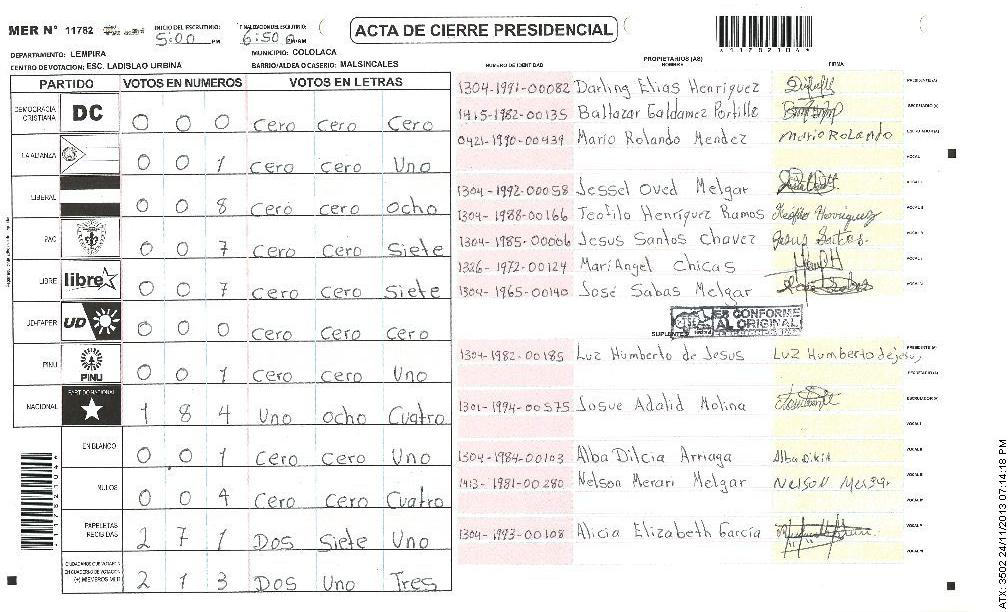 MER N° 11782 INICIO DEL ESCRUTINIO: 5:00 PM FINALIZACION DEL ESCRUTINIO: 6:50 PM/AM
ACTA DE CIERRE PRESIDENCIAL
DEPARTAMENTO: LEMPIRA MUNICIPIO: COLOLACA
CENTRO DE VOTACION: ESC. LADISLAO URBINA BARRIO/ALDEA O CASERIO: MALSINCALES
PARTIDO VOTOS EN NUMEROS VOTOS EN LETRAS
DEMOCRACIA CRISTIANA DC 0 0 0 Cero Cero Cero
LA ALIANZA 0 0 1 Cero Cero Uno
LIBERAL 0 0 8 Cero Cero Ocho
PAC 0 0 7 Cero Cero Siete
LIBRE libre 0 0 7 Cero Cero Siete
UD-FAPER UD 0 0 0 Cero Cero Cero
PINU PINU 0 0 1 Cero Cero Uno
NACIONAL PARTIDO NACIONAL 1 8 4 Uno Ocho Cuatro
EN BLANCO 0 0 1 Cero Cero Uno
NULOS 0 0 4 Cero Cero Cuatro
PAPELETAS RECIBIDAS 2 7 1 Dos Siete Uno
2 1 3 Dos Uno Tres
PROPIETARIOS (AS)
NUMERO DE IDENTIDAD NOMBRE FIRMA
1304-1991-00082 Darling Elias Henriquez
1415-1982-00135 Baltazar Galdamez Portillo
0421-1990-00439 Mario Rolando Mendez Mario Rolando
1304-1992-00058 Jessel Oved Melgar
1304-1988-00166 Teofilo Henríquez Ramos Teofilo Henriquez
1304-1985-00006 Jesus Santos Chavez Jesus Santos
1326-1972-00124 Mari Angel Chicas
1304-1965-00140 José Sabas Melgar
ES CONFORME AL ORIGINAL
SUPLENTES
1304-1982-00185 Luz Humberto de Jesus Luz Humberto de Jesus
1301-1994-00575 Josue Adalid Molina
1304-1984-00103 Alba Dilcia Arriaga
1413-1981-00280 Nelson Merari Melgar
1304-1993-00108 Alicia Elizabeth García
ATX: 3502 24/11/2013 07:14:18 PM